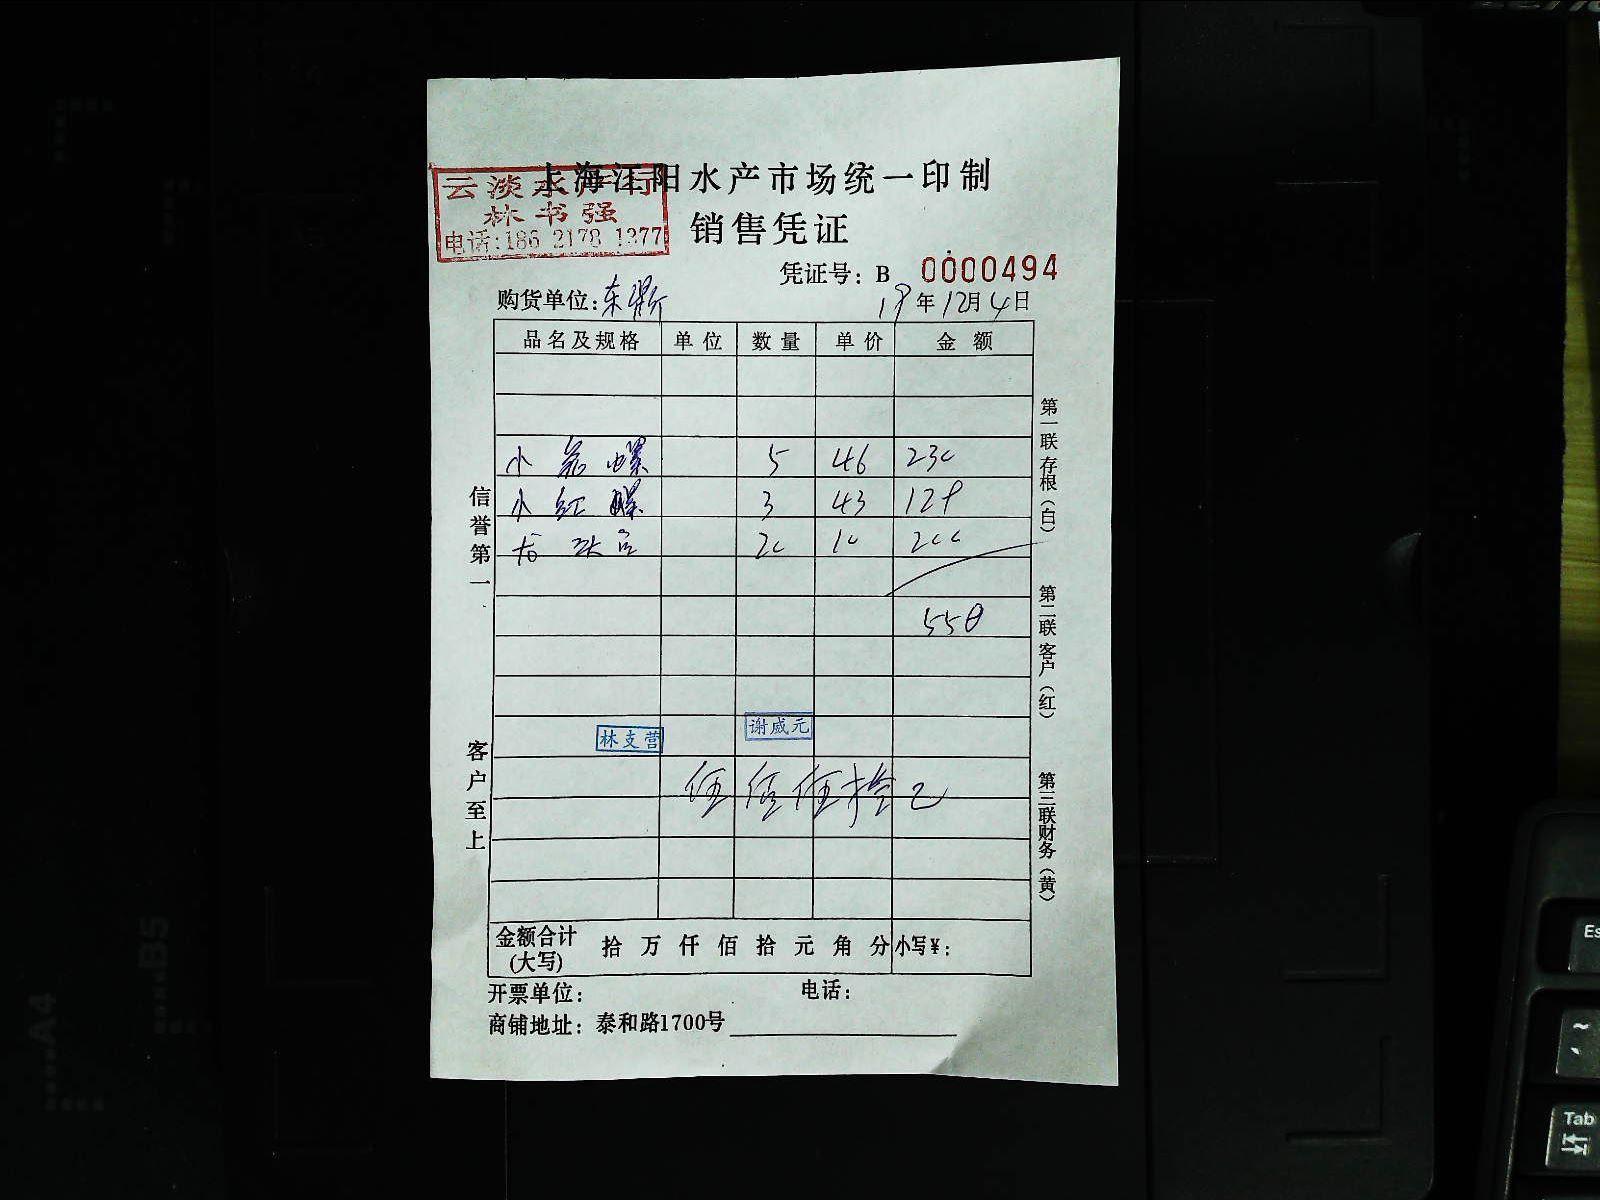 上海江阳水产市场统一印制
云淡水产行
林书强
销售凭证
电话:186 2178 1377
凭证号: B 0000494
购货单位: 东 19年12月4日
品名及规格 单位 数量 单价 金额
小 螺 5 46 230
小红螺 3 43 129
20 10 200
558
林支营 谢威元
伍佰伍拾
金额合计(大写) 拾 万 仟 佰 拾 元 角 分 小写¥:
开票单位: 电话:
商铺地址: 泰和路1700号
信誉第一
客户至上
第一联存根(白)
第二联客户(红)
第三联财务(黄)
A4
B5
Es
~
Tab